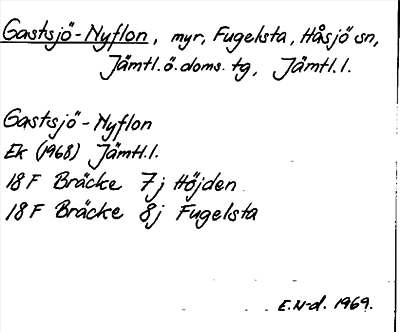 Gastsjö-Nyflon, myr, Fugelsta, Håsjö sn,
Jämtl.ö.doms.tg, Jämtl.l.
Gastsjö-Nyflon
Ek (1968) Jämtl.l.
18F Bräcke 7j Höjden
18F Bräcke 8j Fugelsta
E.N-d. 1969.